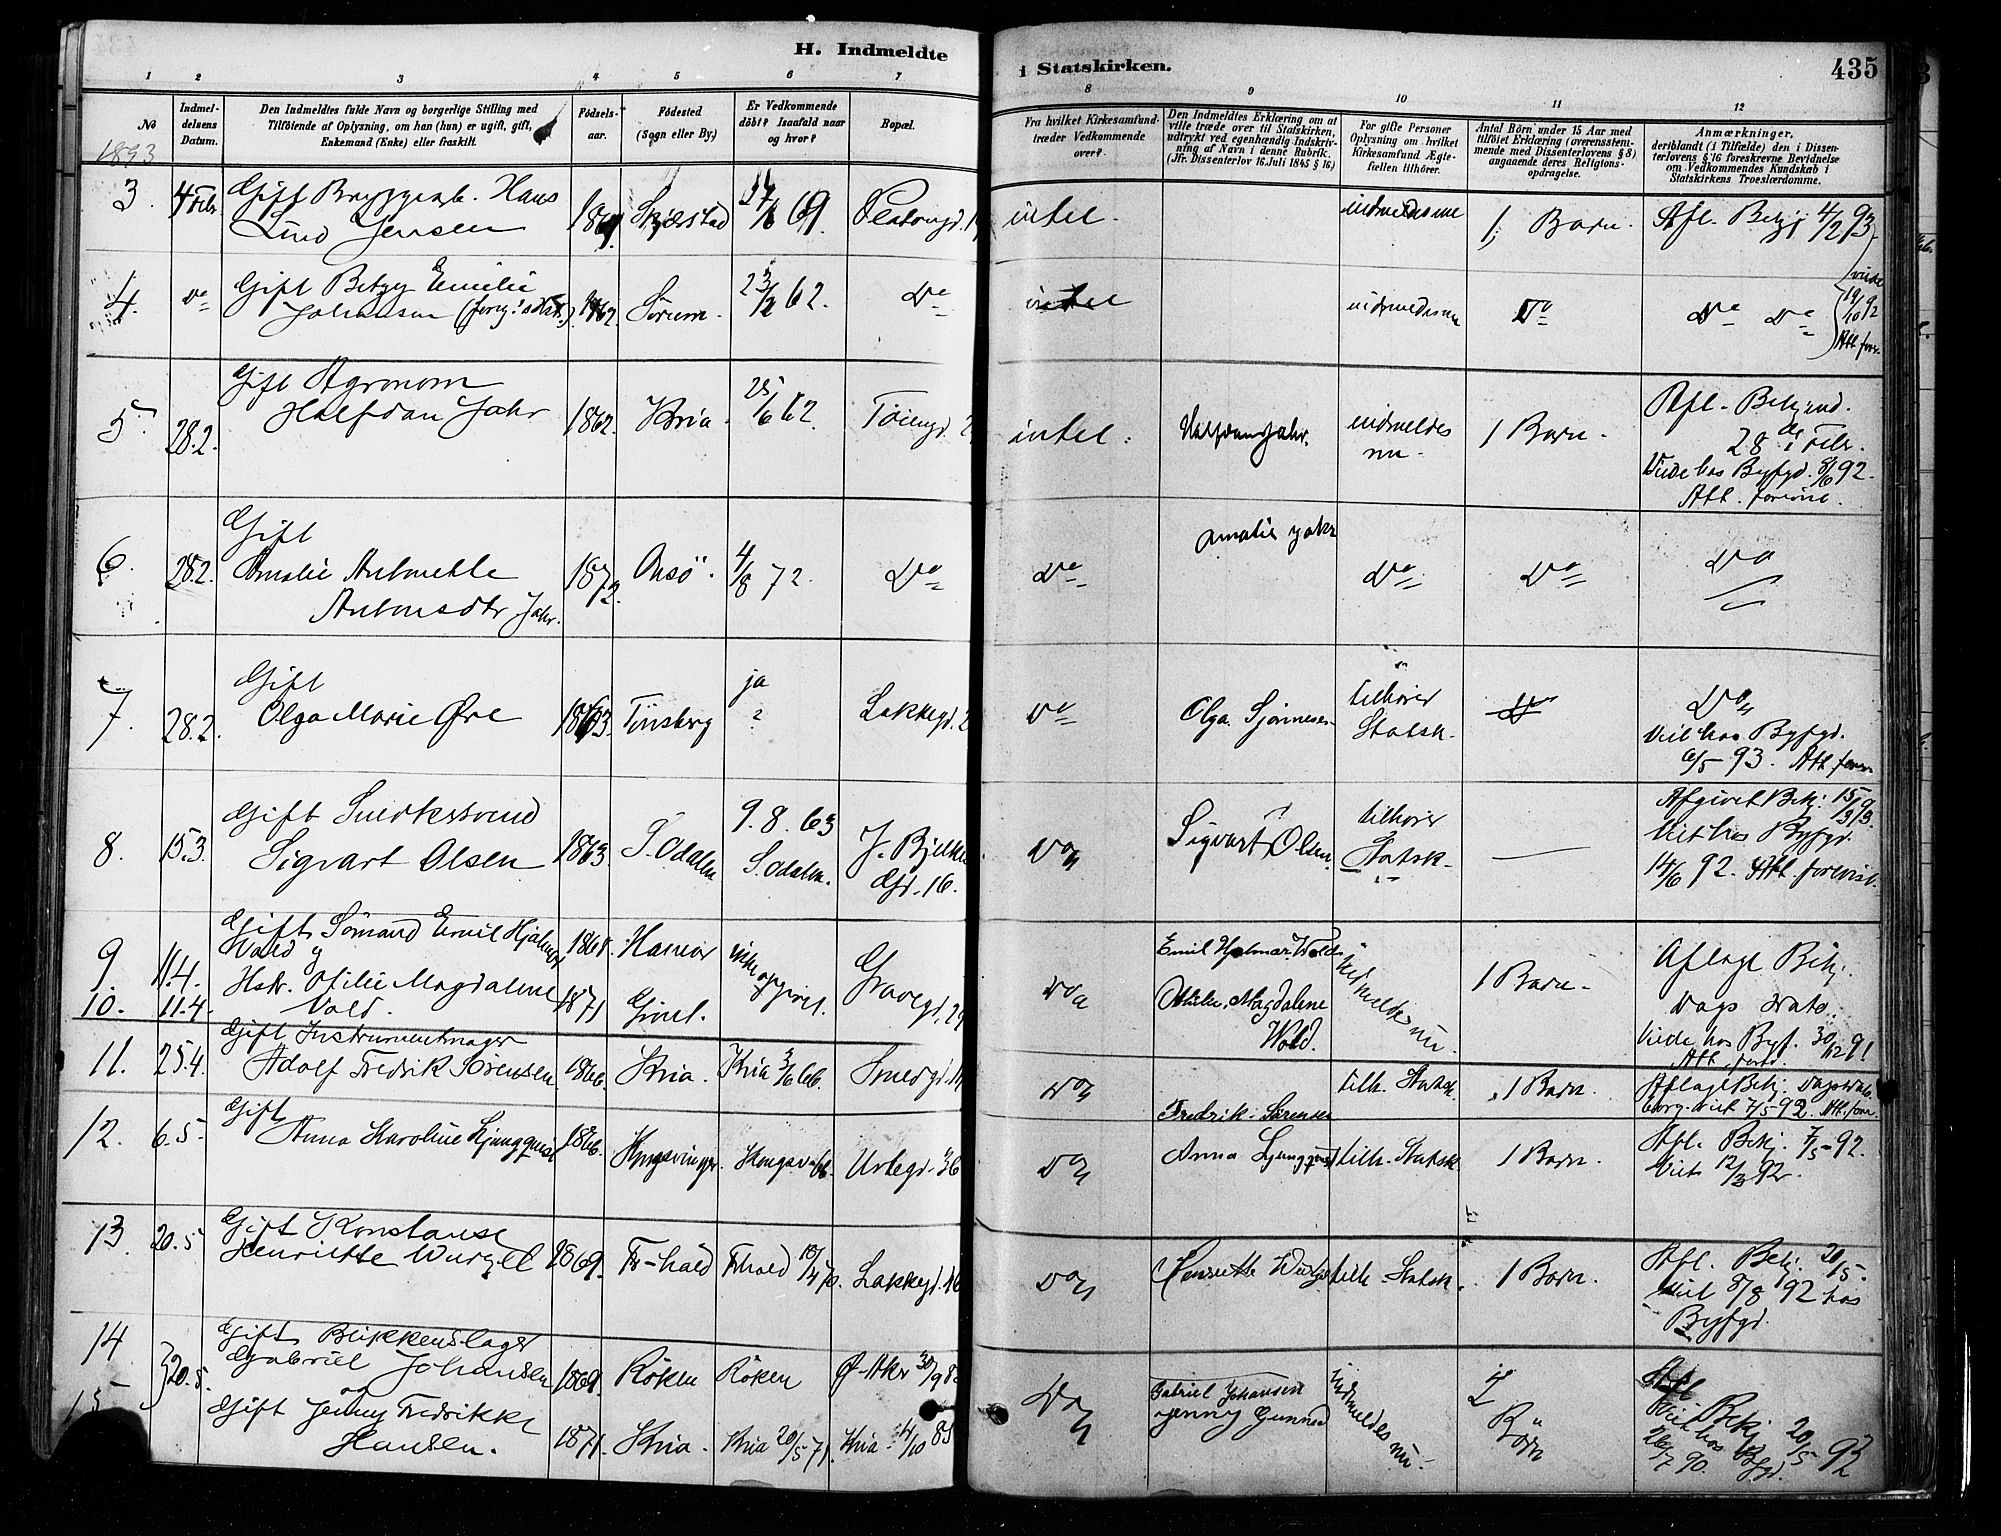 H. Indmeldte
i Statskirken.
435
1 2 3 4 5 6 7
8 9 10 11 12
No
1893
Indmel-
delsens
Datum.
Den Indmeldtes fulde Navn og borgerlige Stilling med
Tilföiende af Oplysning, om han (hun) er ugift, gift,
Enkemand (Enke) eller fraskilt.
Födsels-
aar.
Födested
(Sogn eller By.)
Er Vedkommende
döbt? Isaafald naar
og hvor?
Bopæl.
Fra hvilket Kirkesamfund
træder Vedkommende
over?
Den Indmeldtes Erklæring om at
ville træde over til Statskirken,
udtrykt ved egenhændig Indskriv-
ning af Navn i denne Rubrik.
(Jfr. Dissenterlov 16 Juli 1845 § 16)
For gifte Personer
Oplysning om hvilket
Kirkesamfund Ægte-
fællen tilhörer.
Antal Börn under 15 Aar med
tilföiet Erklæring (overensstem-
mende med Dissenterlovens § 8)
angaaende deres Religions-
opdragelse.
Anmærkninger,
deriblandt (i Tilfælde) den i Dissen-
terlovens § 16 foreskrevne Bevidnelse
om Vedkommendes Kundskab i
Statskirkens Troeslærdomme.
3. 4 Febr. Gift Bryggeiarb. Hans
Lund Jensen
69.
intet.
indmeldes nu
1 Barn.
Afl. Bekj 4/2 93
4. Do Gift Betzy Emilie
Johansen
1862. Sörum. 62. Do
intet
indmeldes nu
Do
Do Do
5. 28.2. Gift Agronom
Halfdan Jahr
1862. Kria. 25/6 62. Töiengd.
intet.
Halfdan Jahr.
indmeldes
nu.
1 Barn.
Afl. Bekjend.
28 de Febr.
Viede hos Byfgd. 92.
Att. forevist.
6. 28.2. Gift
Amalie Antonette
Antonsdtr Jahr.
1872. Onsö. 4/8 72. Do
Do
Amalie Jahr
Do
Do
Do
7. 28.2. Gift
Olga Marie Øre
1863. Tönsberg
ja
?
Lakkegd.
Do
Olga
tilhörer
Statsk.
Do
Viet hos Byfgd.
93. Att. forev.
8. 15.3. Gift Snedkersvend
Sigvart Olsen
1863. S. Odalen
9.8.63
S. Odalen.
J. Bjelkes
Gd. 16.
Do
Sigvart Olsen.
tilhörer
Statsk.
Afgivet Bekj. 15/3 93.
Viet hos Byfgd.
14/6 92. Att. forevist.
9. 11.4. Gift Sömand Emil Hjalmar
Wold og
10. 11.4. Hstr. Otilie Magdalene
Wold.
1868. Hamar
1871 Gjövik.
ikke opgivet.
Gravegd. 29
Do
Emil Hjalmar Wold
Otilie Magdalene
Wold.
indmeldes nu.
1 Barn.
Aflagt Bekj.
Dags Dato.
Viede hos Byf. 30/12 91
11. 25.4. Gift Instrumentmager
Adolf Fredrik Sörensen
1866. Kria. Kria 3/6 66. Smedgd.
Do
Fredrik Sörensen
tilh. Statsk.
1 Barn.
Aflagt Bekj. Dags Dato.
borg. viet 7/5-92. Att. forev.
12. 6.5. Gift
Anna Karoline Ljungquist
1866. Kongsvinger. Kongsv. 66. Urtegd. 36
Do
Anna Ljungquist
tilh. Statsk
1 Barn.
Afl. Bekj. 7/5-92.
Viet 12/3 92.
13. 20.5 Gift Konstanse
Henriette Wurzel
1869. Fr-hald Frhald Lakkegd. 16
Do
Henriette
tilh. Statsk.
1 Barn.
Afl. Bekj. 20/5.
Viet 8/8 92 hos
Byfgd.
14
15
20.5. Gift Blikkenslager
Gabriel Johansen
og
Gift Jenny Fredrikke
Hansen.
1869. Röken Röken Ø. Aker
1871. Kria. Kria 20/5 71. Kria.
Do
Gabriel Johansen
Jenny
Indmeldes nu.
2
Börn
Afl.
Bekj 20/5 93
Viet hos Byfgd.